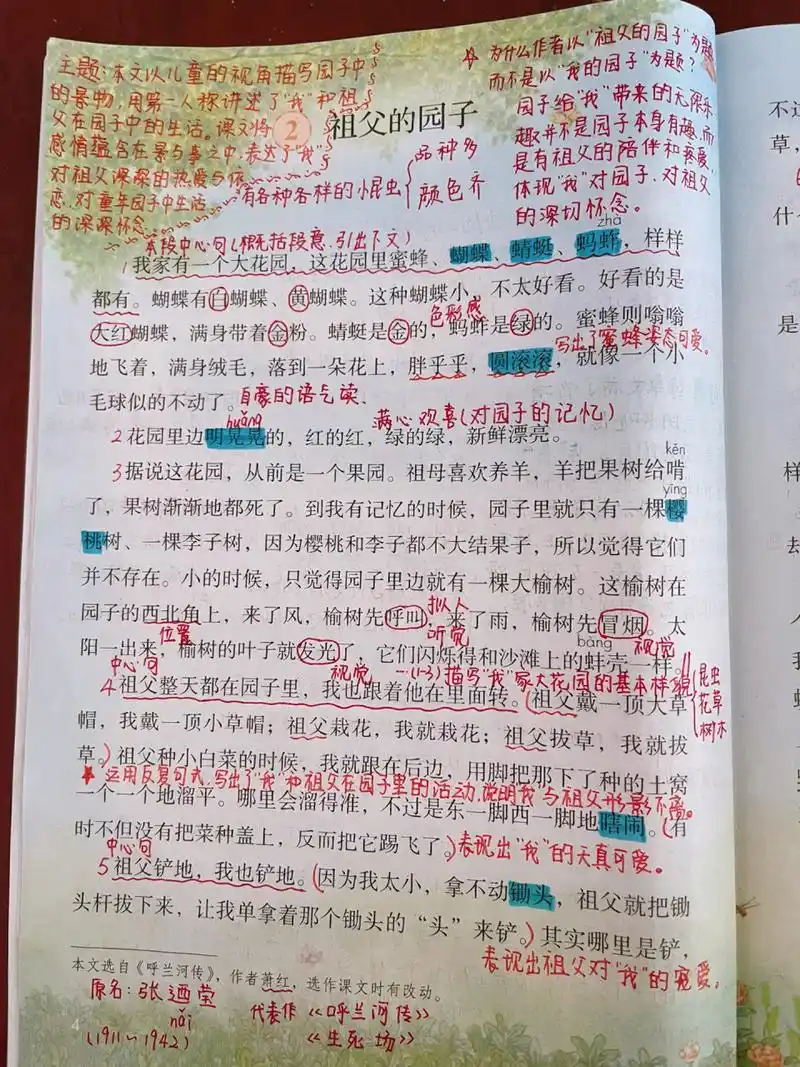 主题:本文以儿童的视角描写园子中
的景物,用第一人称讲述了“我”和祖
父在园子中的生活。课文将
感情蕴含在景与事之中,表达了“我”
对祖父深深的热爱与依
恋,对童年园子中生活
的深深怀念。
为什么作者以“祖父的园子”为题
而不是以“我的园子”为题?
园子给“我”带来的无限乐
趣并不是园子本身有趣,而
是有祖父的陪伴和疼爱。
体现“我”对园子、对祖父
的深切怀念。
2 祖父的园子
有各种各样的小昆虫
品种多
颜色齐
本段中心句(概括段意,引出下文)
zhà
1我家有一个大花园,这花园里蜜蜂、蝴蝶、蜻蜓、蚂蚱,样样
都有。蝴蝶有白蝴蝶、黄蝴蝶。这种蝴蝶小,不太好看。好看的是
大红蝴蝶,满身带着金粉。蜻蜓是金的,蚂蚱是绿的。蜜蜂则嗡嗡
色彩感
写出了蜜蜂姿态可爱。
地飞着,满身绒毛,落到一朵花上,胖乎乎,圆滚滚,就像一个小
毛球似的不动了。自豪的语气读.
huǎng
满心欢喜(对园子的记忆)
2花园里边明晃晃的,红的红,绿的绿,新鲜漂亮。
kěn
3据说这花园,从前是一个果园。祖母喜欢养羊,羊把果树给啃
yīng
了,果树渐渐地都死了。到我有记忆的时候,园子里就只有一棵樱
桃树、一棵李子树,因为樱桃和李子都不大结果子,所以觉得它们
并不存在。小的时候,只觉得园子里边就有一棵大榆树。这榆树在
园子的西北角上,来了风,榆树先呼叫,来了雨,榆树先冒烟。太
位置
拟人
听觉
bàng
视觉
阳一出来,榆树的叶子就发光了,它们闪烁得和沙滩上的蚌壳一样。
中心句
视觉
(1-3)描写“我”家大花园的基本样貌
昆虫
花草
树木
4祖父整天都在园子里,我也跟着他在里面转。(祖父戴一顶大草
帽,我戴一顶小草帽;祖父栽花,我就栽花;祖父拔草,我就拔
草。)祖父种小白菜的时候,我就跟在后边,用脚把那下了种的土窝
运用反复句式,写出了“我”和祖父在园子里的活动,说明“我”与祖父形影不离。
一个一个地溜平。哪里会溜得准,不过是东一脚西一脚地瞎闹。(有
时不但没有把菜种盖上,反而把它踢飞了。)表现出“我”的天真可爱。
中心句
5祖父铲地,我也铲地。(因为我太小,拿不动锄头,祖父就把锄
头杆拔下来,让我单拿着那个锄头的“头”来铲。)其实哪里是铲,
表现出祖父对“我”的宠爱。
本文选自《呼兰河传》,作者萧红,选作课文时有改动。
原名:张迺莹
nǎi
(1911~1942)
代表作《呼兰河传》
《生死场》
4
不
草,
什
是
样
去
人
我